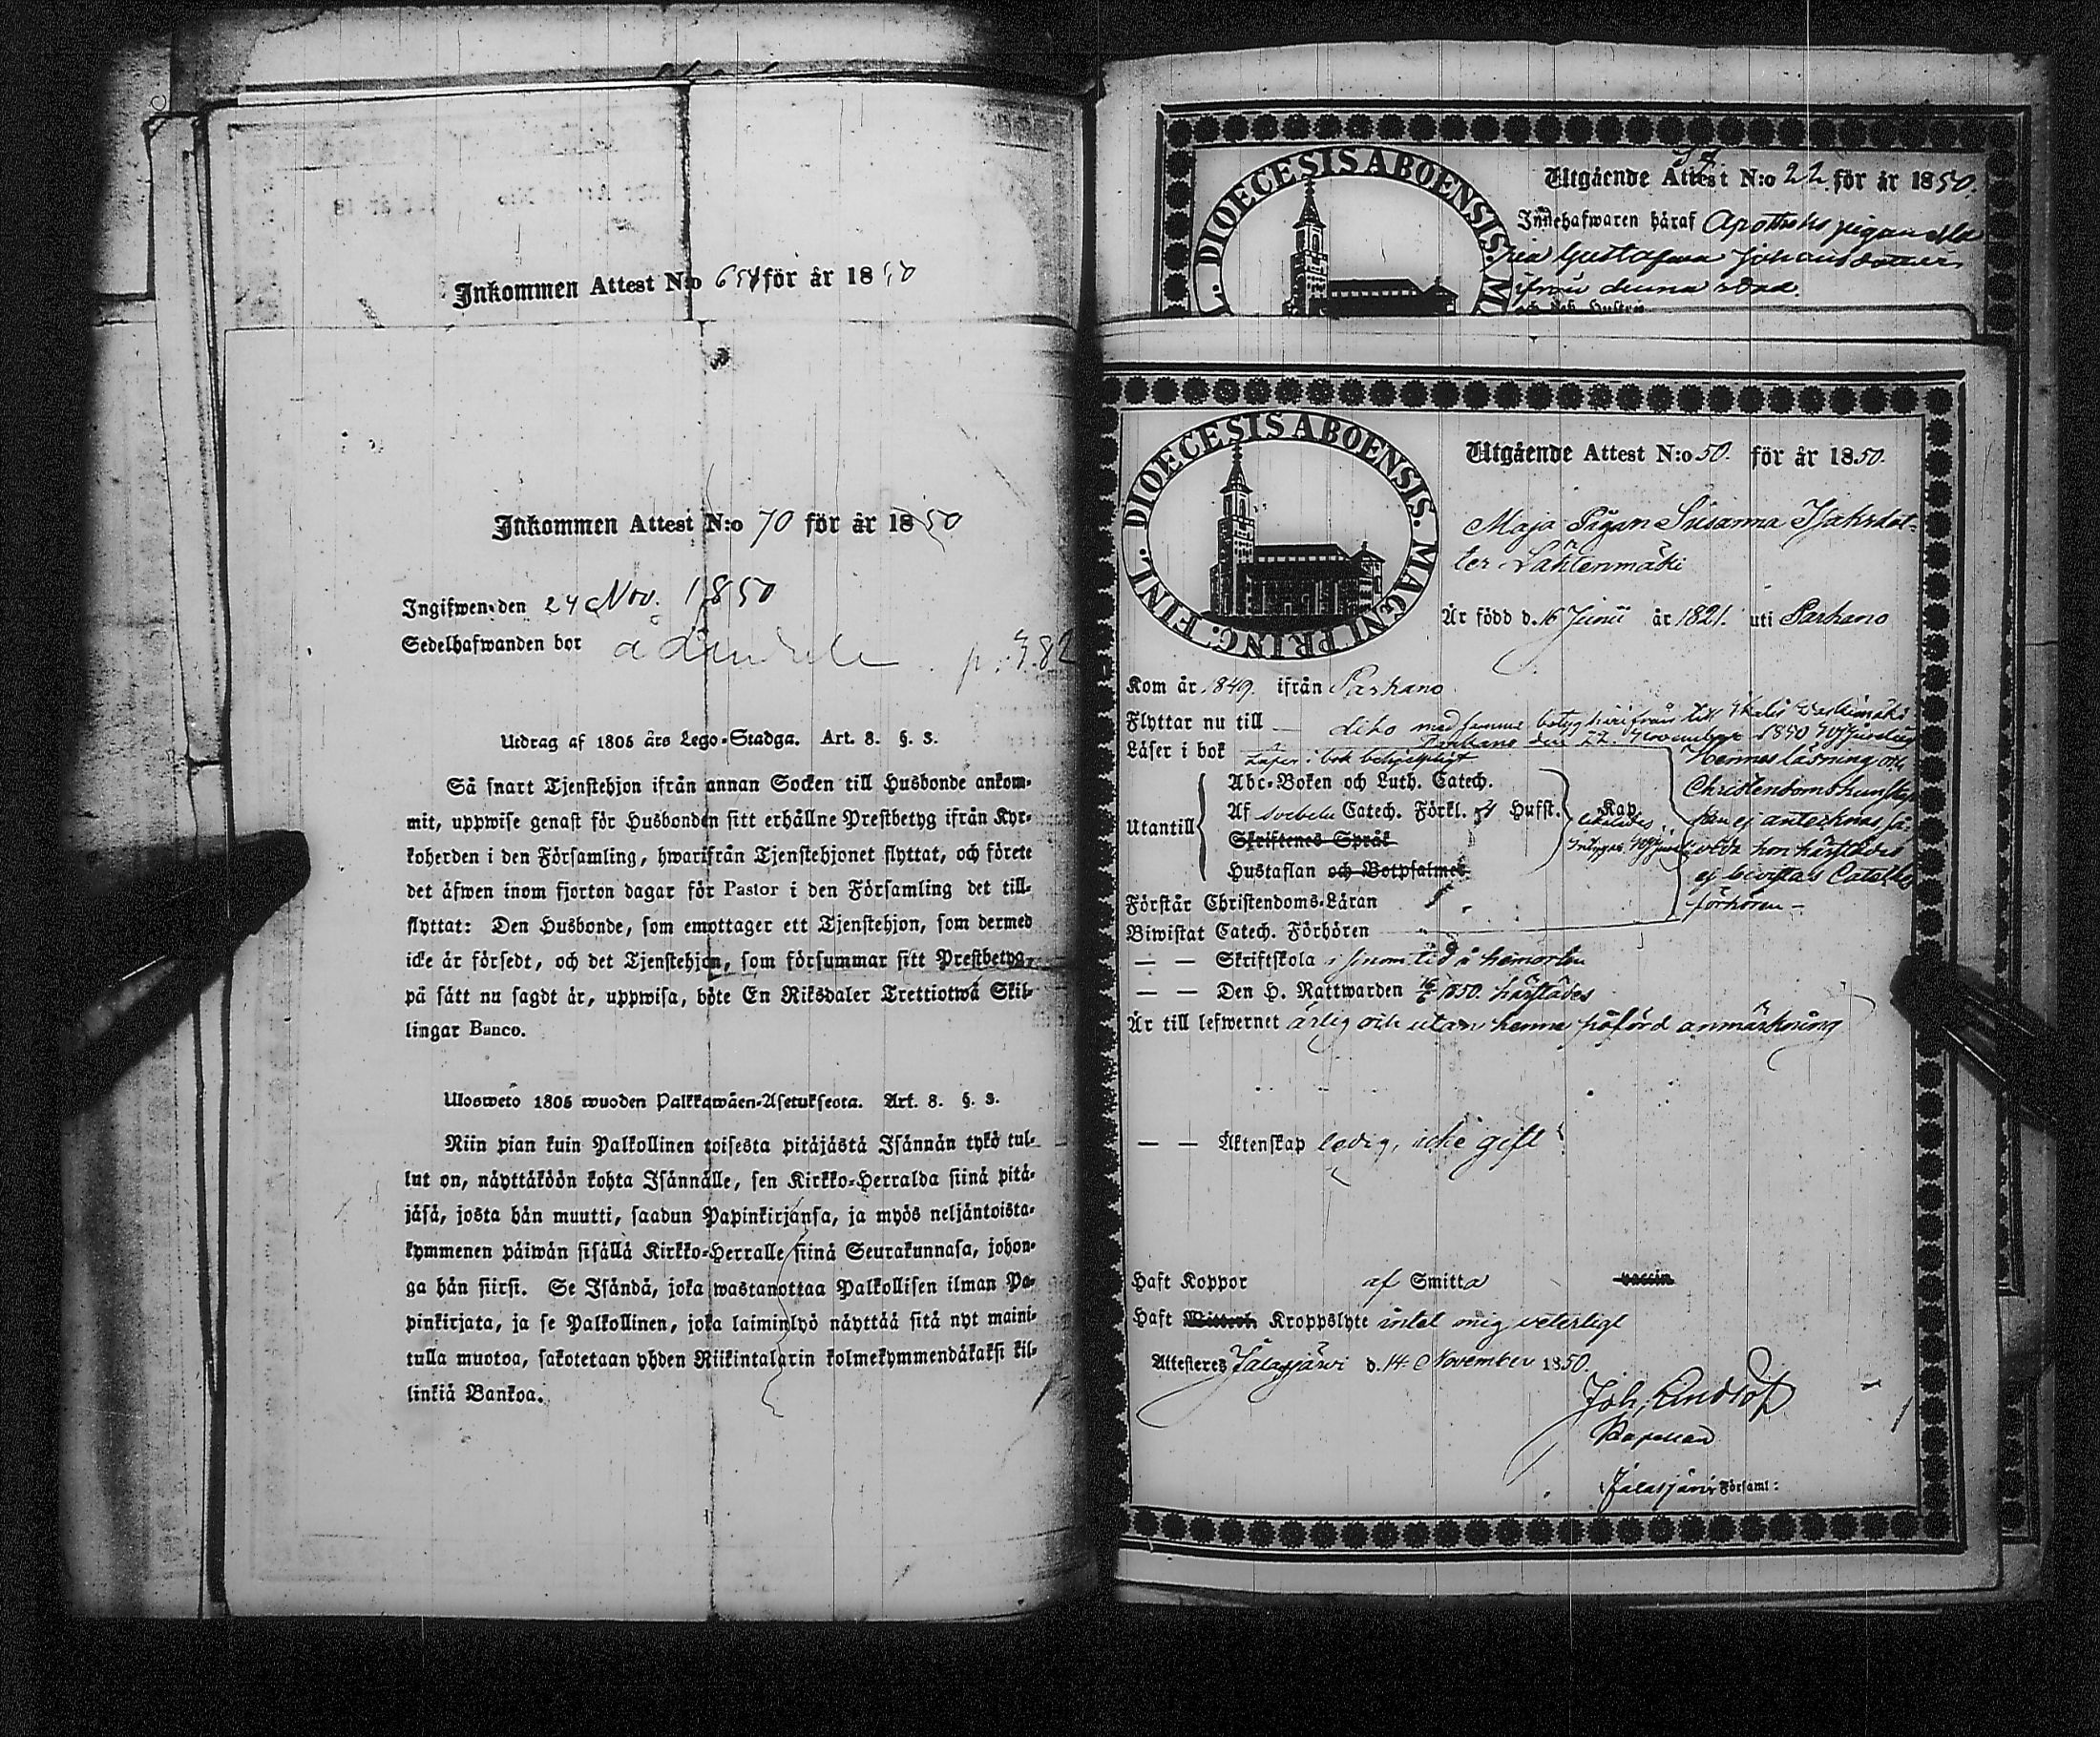 Inkommen Attest N:o 654 för år 1850
Inkommen Attest N:o 70 för år 1850
Ingifwen den 24 Nov. 1850
Sedelhafwanden bor å p. 382
Utdrag af 1805 års Lego-Stadga. Art. 8. §. 3.
Så snart Tjenstehjon ifrån annan Socken till Husbonde ankom-
mit, uppwise genast för Husbonden sitt erhållne Prestbetyg ifrån Kyr-
koherden i den Församling, hwarifrån Tjenstehjonet flyttat, och förete
det äfwen inom fjorton dagar för Pastor i den Församling det till-
flyttat: Den Husbonde, som emottager ett Tjenstehjon, som dermed
icke är försedt, och det Tjenstehjon, som försummar sitt Prestbetyg,
på sätt nu sagdt är, uppwisa, böte En Riksdaler Trettiotwå Skil-
lingar Banco.
Ulosweto 1805 wuoden Palkkawäen-Asetuksesta. Art. 8. §. 3.
Niin pian kuin Palkollinen toisesta pitäjästä Isännän tykö tul-
lut on, näyttäköön kohta Isännälle, sen Kirkko-Herralda siinä pitä-
jäsä, josta hän muutti, saadun Papinkirjansa, ja myös neljäntoista-
kymmenen päiwän sisällä Kirkko-Herralle siinä Seurakunnasa, johon-
ga hän siirsi. Se Isändä, joka wastanottaa Palkollisen ilman Pa-
pinkirjata, ja se Palkollinen, joka laiminlyö näyttää sitä nyt maini-
tulla muotoa, sakotetaan yhden Riikintalarin kolmekymmendäkaksi kil-
linkiä Bankoa.
DIOECESIS ABOENSIS. M
Utgående Attest N:o 22 för år 1850.
Innehafwaren häraf Apotheks pigan Ma
ria Gustafwa Johansdotter
ifrån denna stad.
DIOECESIS ABOENSIS. MAGNI PRINC: FINL.
Utgående Attest N:o 50. för år 1850.
Maja Pigan Susanna Isaksdot-
ter Lahtenmäki
Är född d. 16 Junii år 1821. uti Parkano
Kom år 1849. ifrån Parkano
Flyttar nu till dito med samma betyg härifrån till Ikalis
Parkano den 22 November 1850
Läser i bok Läser i bok behjelpligt
Hennes läsning och
Christendomskunskap
kan ej antecknas så-
som hon härstädes
ej bivistat Catech.
förhören –
Utantill
Abc-Boken och Luth. Catech.
Af Svebele Catech. Förkl. Hufst. Kap.
Skriftenes Språk
Hustaflan och Botpsalmer
Förstår Christendoms-Läran
Biwistat Catech. Förhören
— — Skriftskola i sinom tid å hemorten
— — Den H. Nattwarden 1850. härstädes
Är till lefwernet ärlig och utan henne påförd anmärkning
— — Äktenskap ledig, icke gift
Haft Koppor af Smitta vaccin
Haft Kroppslyte intet mig veterligt
Attesteres Jalasjärvi d. 14 November 1850.
Kapellan
Jalasjärvi Församl: